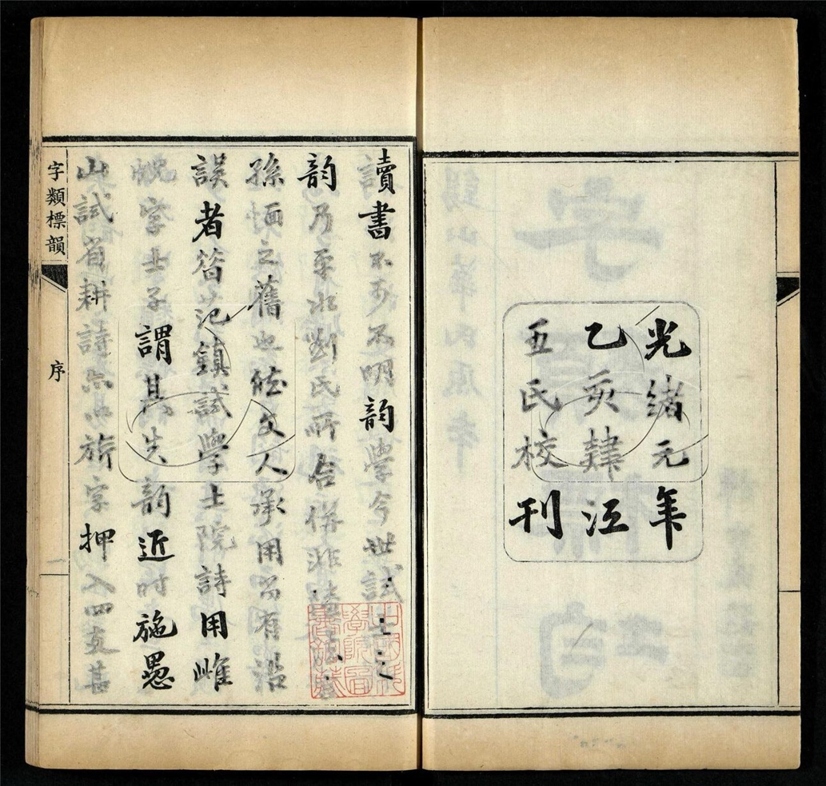 光緒元年
乙亥肆江
五氏校刊
讀書不可不明韻學今世試士之
韻乃平水劉氏所合併非陸法言
孫愐之舊也然文人承用尚有沿
誤者昔范鎮試學士院詩用雌
蜺字士子謂其失韻近時施愚
山試省耕詩亦以旂字押入四支甚
字類標韻 序 一